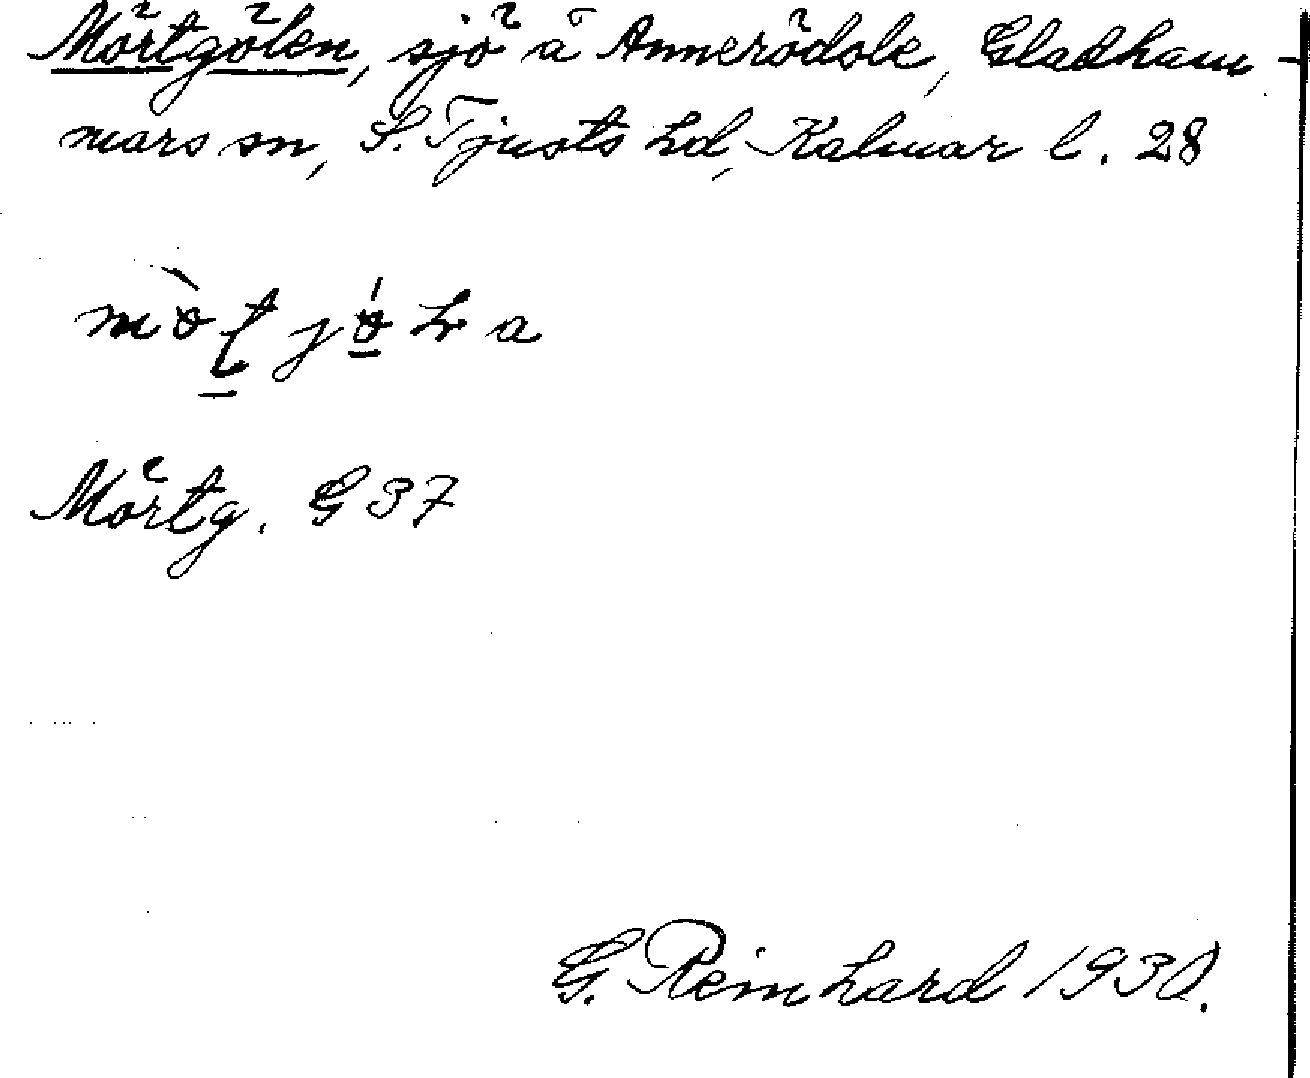 Mörtgölen, sjö å Annerödsle, Gladham-
mars sn, S. Tjusts hd, Kalmar l. 28
Mörtg. G 37
G. Reinhard 1930.